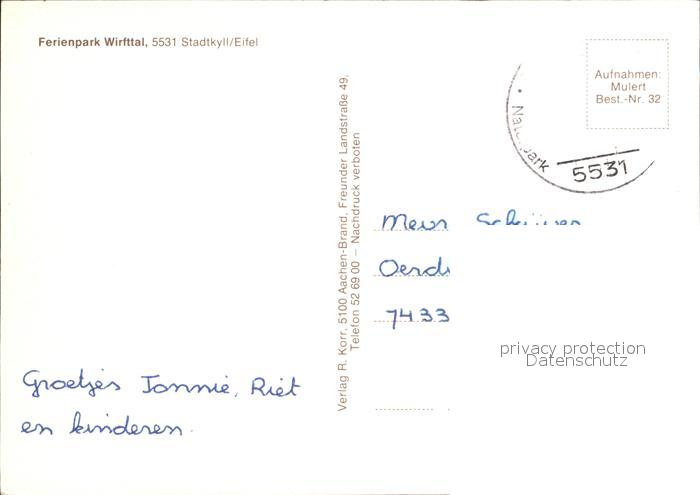 Ferienpark Wirfttal, 5531 Stadtkyll/Eifel
Aufnahmen:
Mulert
Best.-Nr. 32
5531
Verlag R. Korr, 5100 Aachen-Brand, Freunder Landstraße 49.
Telefon 52 69 00 – Nachdruck verboten
7433
privacy protection
Datenschutz
Groetjes Tonnie, Riet
en kinderen.